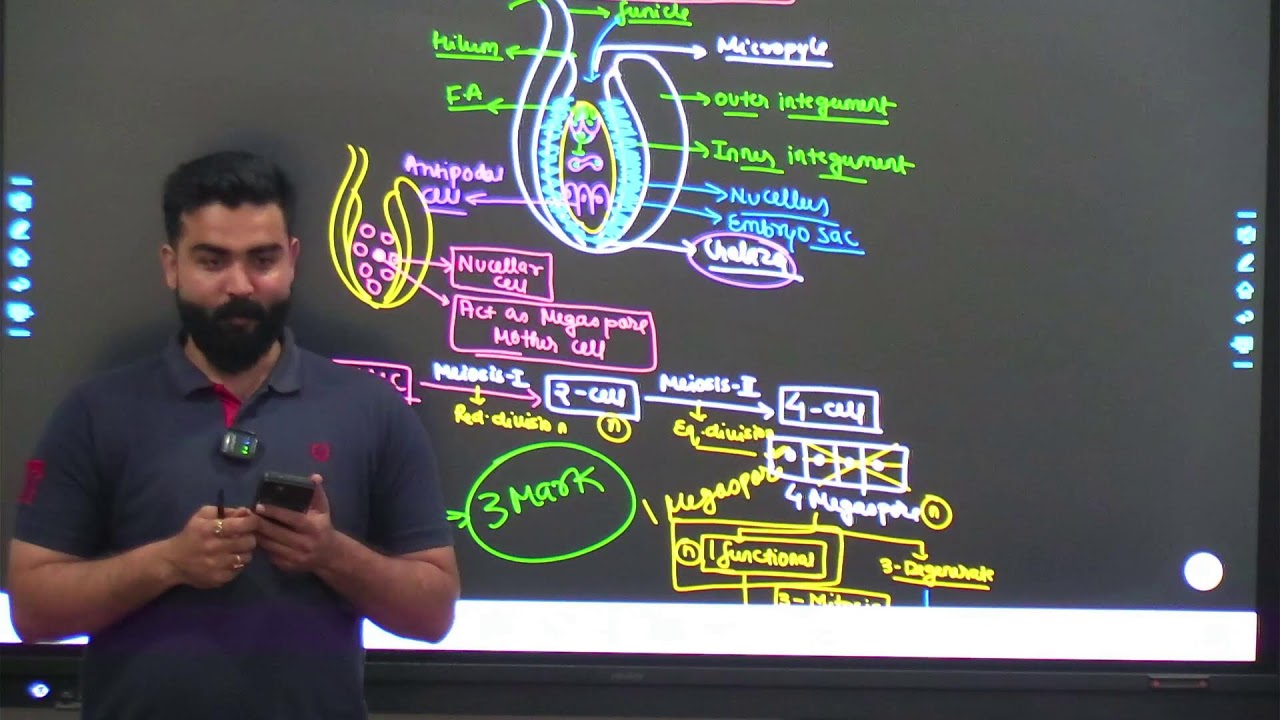 funicle
Hilum
Micropyle
F.A
outer integument
Inner integument
Antipodal
cell
Nucellus
Embryo sac
Chalaza
Nucellar
cell
Act as Megaspore
Mother cell
Meiosis-I
2-cell
Meiosis-II
4-cell
Red.division
n
Eq.division
3 Mark
Megaspore
4 Megaspore n
n 1 functional
3-Degenerate
3-Mitosis